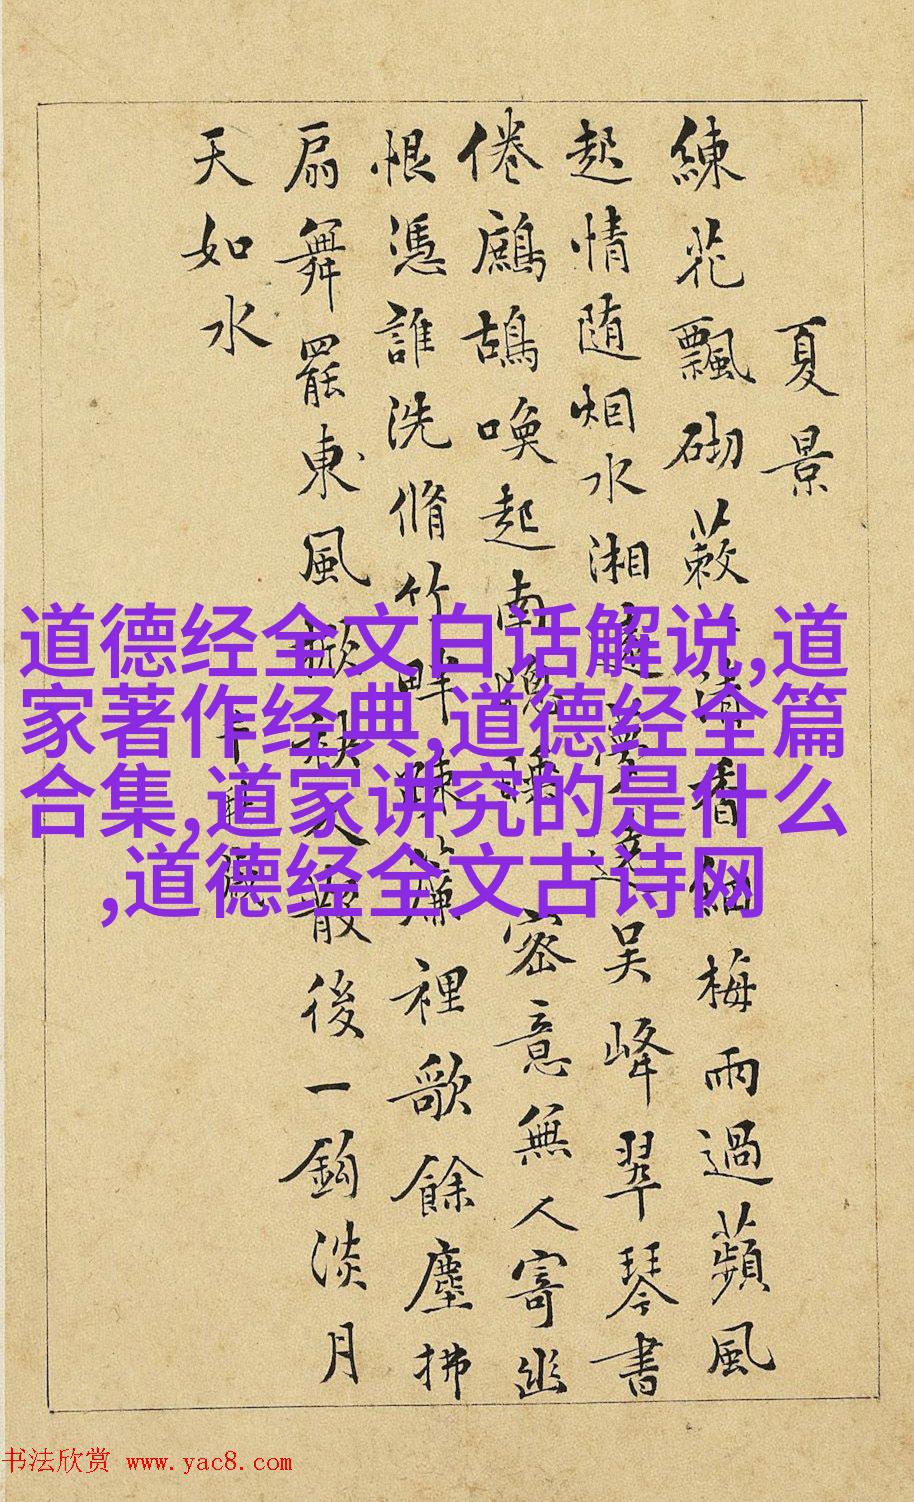 夏景
練花飄砌蔌清香細梅雨過蘋風
起情随烟水湘遠夢遶吳峰翠琴書
倦鷓鴣喚起南睡密意無人寄幽
恨憑誰洗脩竹畔疎簾裡歌餘塵拂
扇舞罷東風掀袂人散後一鈎淡月
天如水
道德经全文白话解说,道
家著作经典,道德经全篇
合集,道家讲究的是什么
,道德经全文古诗网
书法欣赏 www.yac8.com